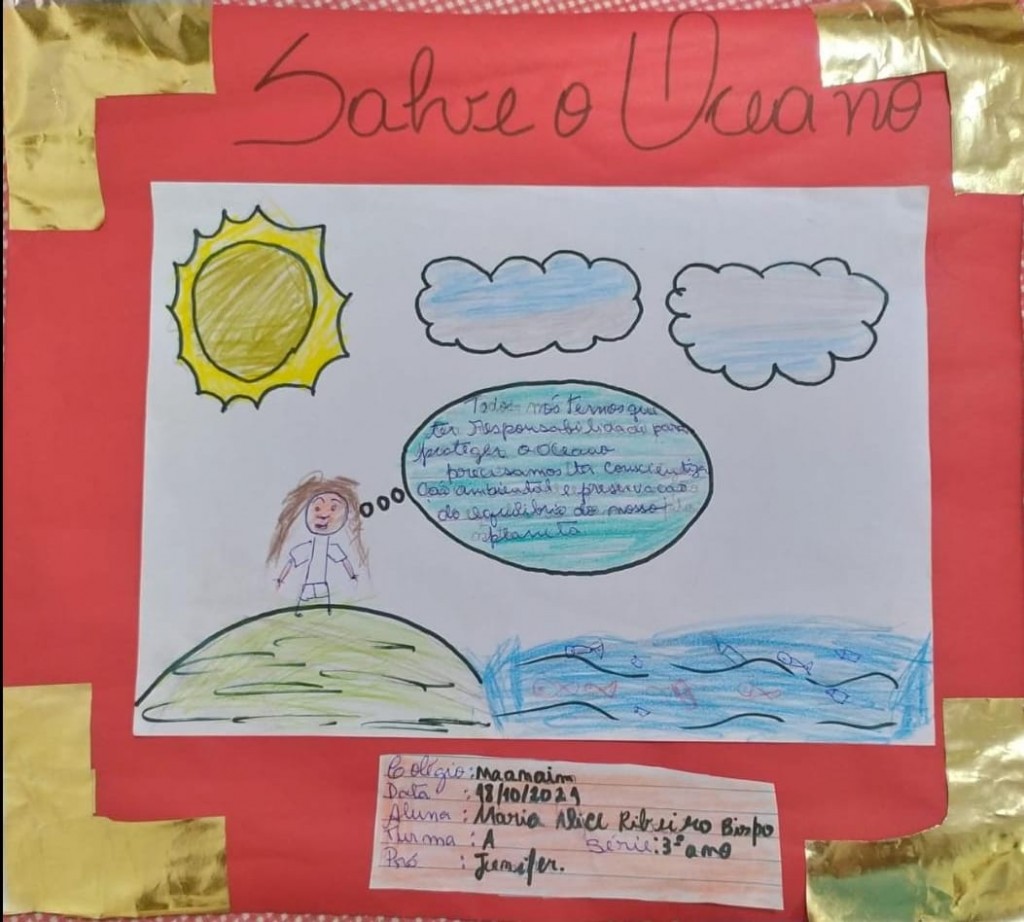 Salve o Oceano
Todos nós temos que
ter Responsabilidade para
proteger o Oceano
precisamos ter conscientiza
ção ambiental e preservação
do equilibrio do nosso
planeta
Colégio: Maanaim
Data : 18/10/2021
Aluna : Maria Alice Ribeiro Bispo
Turma : A Série: 3º ano
Pró : Jenifer.